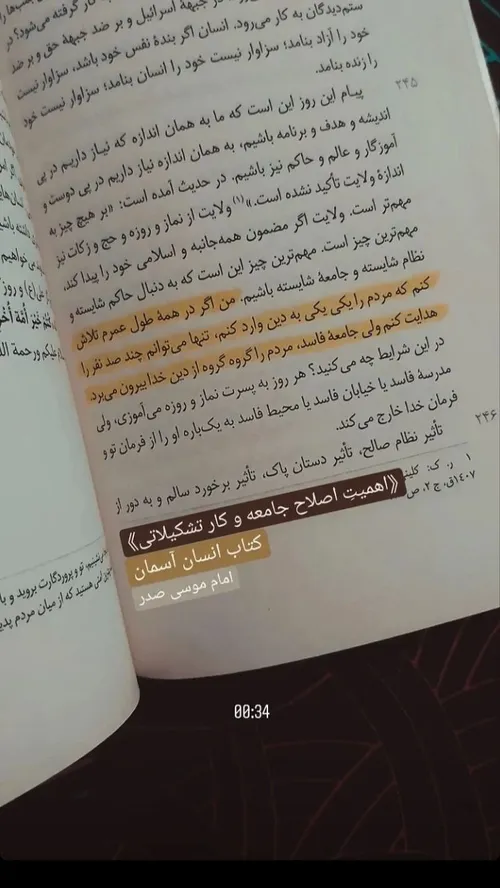 ستم‌دیدگان به کار می‌رود. انسان اگر بندهٔ نفس خود باشد، سزاوار نیست
خود را آزاد بنامد؛ سزاوار نیست خود را انسان بنامد؛ سزاوار نیست خود
را زنده بنامد.
۲۴۵
پیام این روز این است که ما به همان اندازه که نیاز داریم در پی
اندیشه و هدف و برنامه باشیم، به همان اندازه نیاز داریم در پی دوست و
آموزگار و عالم و حاکم نیز باشیم. در حدیث آمده است: «بر هیچ چیز به
اندازهٔ ولایت تأکید نشده است.»(۱) ولایت از نماز و روزه و حج و زکات نیز
مهم‌تر است. ولایت اگر مضمون همه‌جانبه و اسلامی خود را پیدا کند،
مهم‌ترین چیز است. مهم‌ترین چیز این است که به دنبال حاکم شایسته و
نظام شایسته و جامعهٔ شایسته باشیم. من اگر در همهٔ طول عمرم تلاش
کنم که مردم را یکی یکی به دین وارد کنم، تنها می‌توانم چند صد نفر را
هدایت کنم ولی جامعهٔ فاسد، مردم را گروه گروه از دین خدا بیرون می‌برد.
در این شرایط چه می‌کنید؟ هر روز به پسرت نماز و روزه می‌آموزی، ولی
مدرسهٔ فاسد یا خیابان فاسد یا محیط فاسد به یک‌باره او را از فرمان تو و
فرمان خدا خارج می‌کند.
۲۴۶
تأثیر نظام صالح، تأثیر دستان پاک، تأثیر برخورد سالم و به دور از
۱ ر. ک:
۱۴۰۷ق، ج ۲، ص
《اهمیتِ اصلاح جامعه و کار تشکیلاتی》
کتاب انسان آسمان
امام موسی صدر
00:34